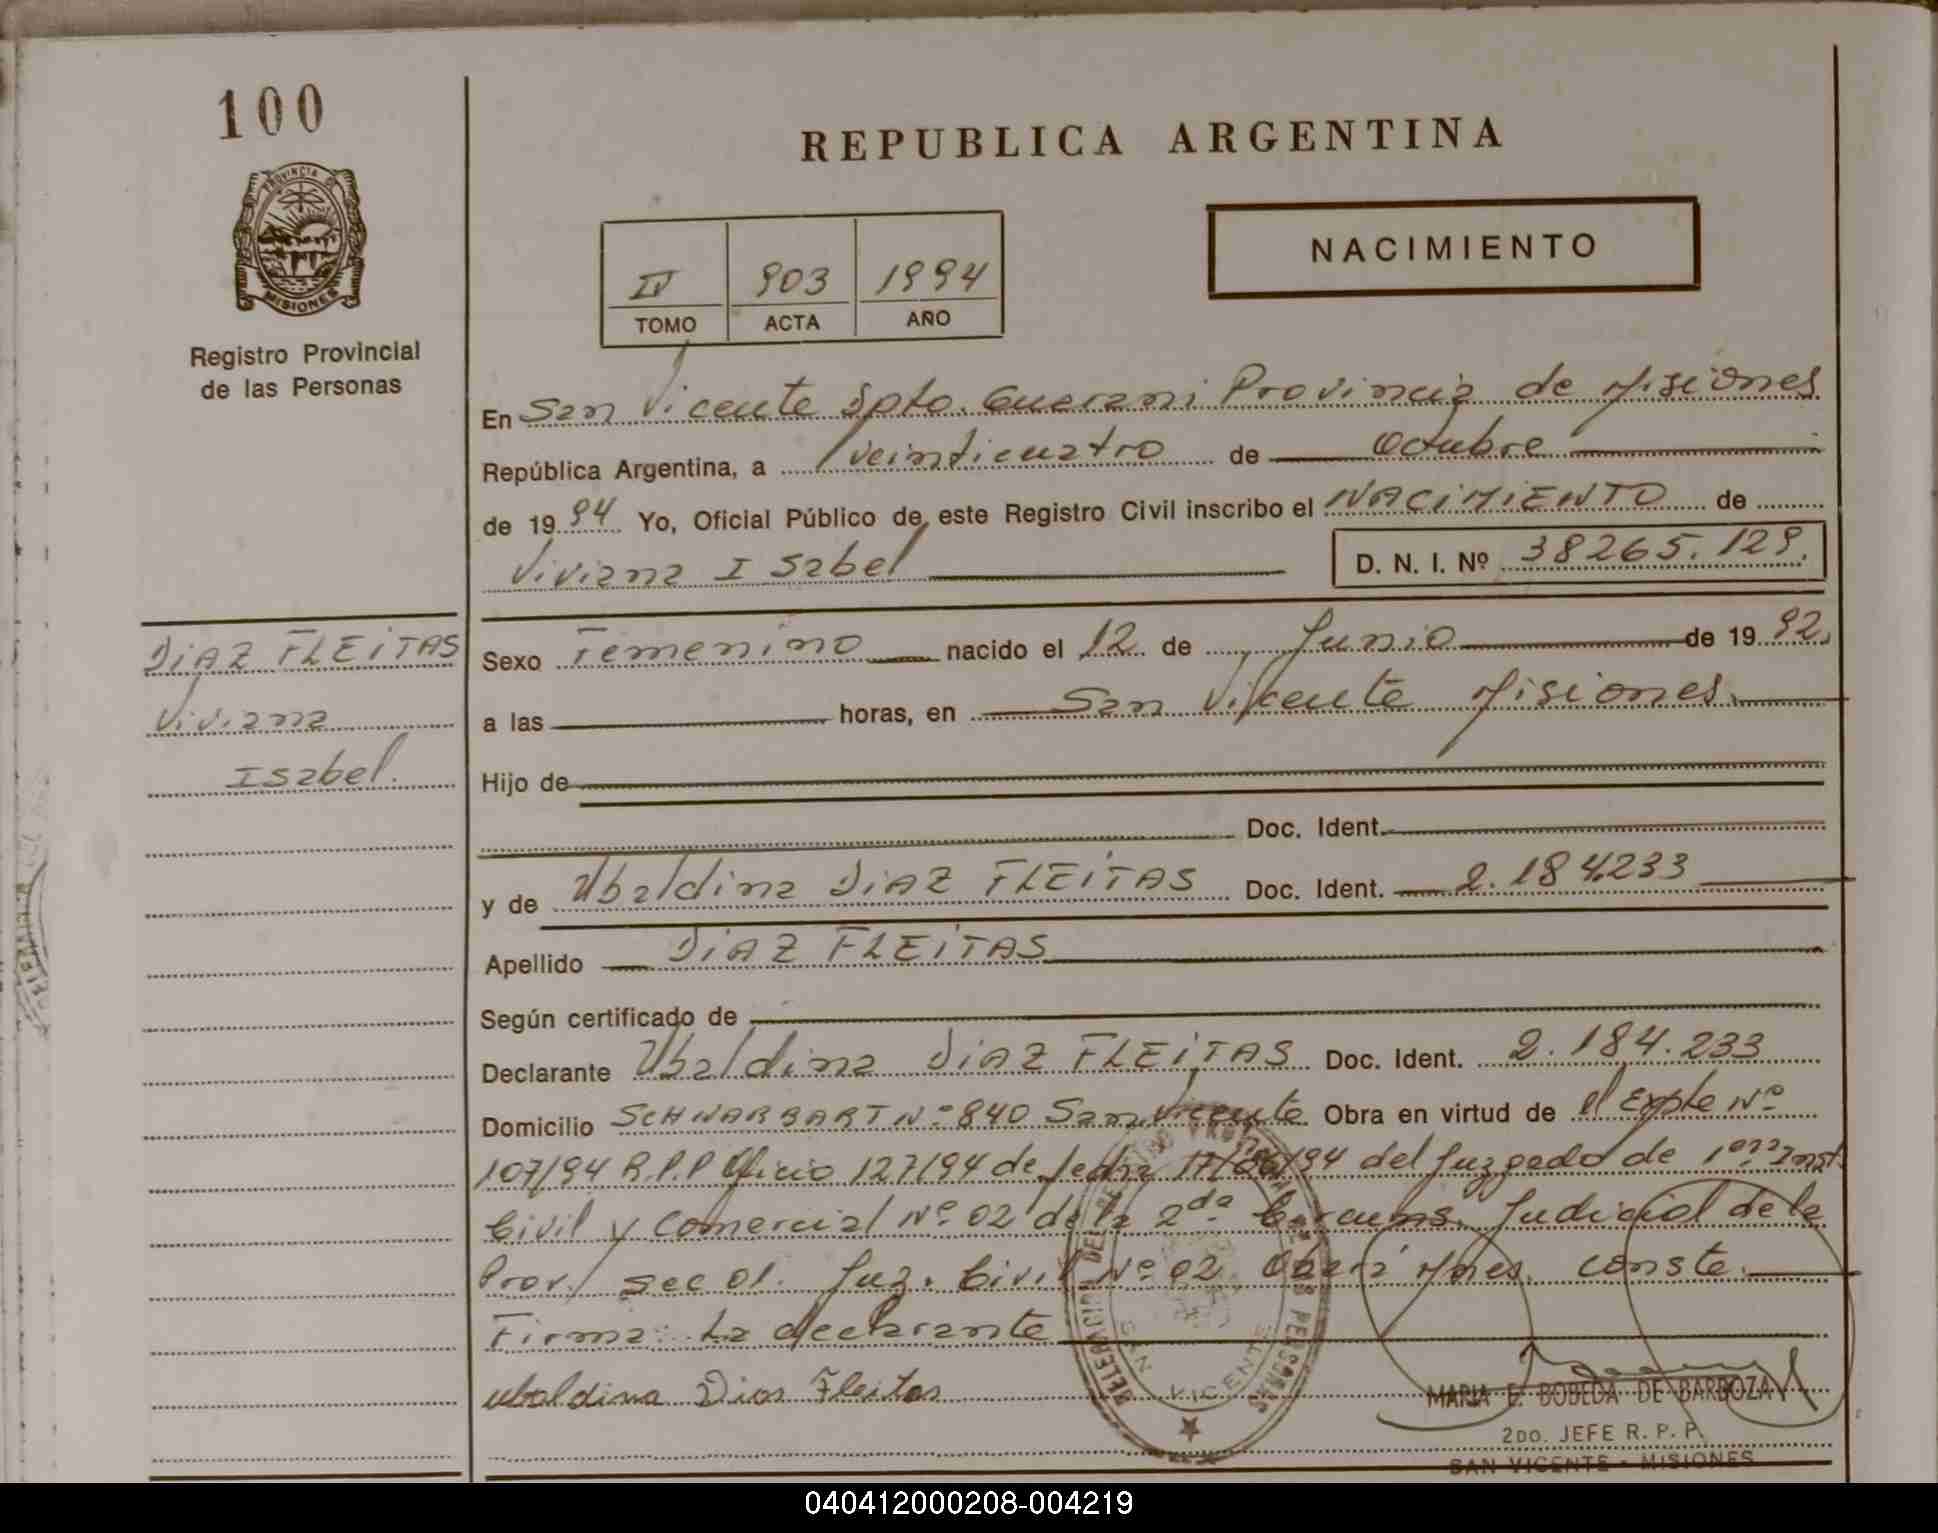 100
PROVINCIA DE
MISIONES
Registro Provincial
de las Personas
REPUBLICA ARGENTINA
NACIMIENTO
IV 903 1994
TOMO ACTA AÑO
En San Vicente Dpto. Guarani Provincia de Misiones
República Argentina, a veinticuatro de Octubre
de 1994 Yo, Oficial Público de este Registro Civil inscribo el NACIMIENTO de
Viviana Isabel D. N. I. Nº 38265.129.
DIAZ FLEITAS
Viviana
Isabel.
Sexo Femenino nacido el 12 de Junio de 1992.
a las horas, en San Vicente Misiones.
Hijo de
Doc. Ident.
y de Ubaldina DIAZ FLEITAS Doc. Ident. 2.184.233
Apellido DIAZ FLEITAS
Según certificado de
Declarante Ubaldina DIAZ FLEITAS Doc. Ident. 2.184.233
Domicilio SCHWARBART Nº 840 San Vicente Obra en virtud de el Expte Nº
107/94 R.P.P Oficio 127/94 de fecha 17/06/94 del Juzgado de 1era Inst.
Civil y Comercial Nº 02 de la 2da Circuns. Judicial de la
Prov. Sec 01. Juz. Civil Nº 02 Oberá Mnes. conste.
Firma: La declarante
ubaldina Dias Fleitas
SAN VICENTE
MARIA E. BOBEDA DE BARBOZA
2DO. JEFE R. P. P.
SAN VICENTE - MISIONES
040412000208-004219